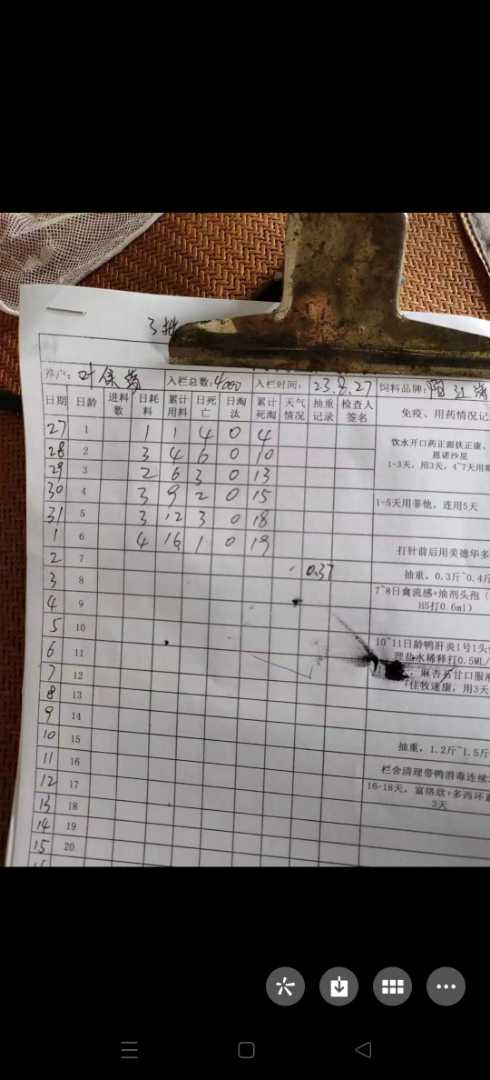 入栏总数: 4000 入栏时间: 23.8.27 饲料品牌:
日期 日龄 进料数 日耗料 累计用料 日死亡 日淘汰 累计死淘 天气情况 抽重记录 检查人签名 免疫、用药情况记
27 1 1 1 4 0 4
饮水开口药正源扶正康、
恩诺沙星
28 2 3 4 6 0 10
1-3天，用3天，4~7天用
29 3 2 6 3 0 13
30 4 3 9 2 0 15
31 5 3 12 3 0 18 1-5天用 连用5天
1 6 4 16 1 0 19
2 7 0.37 打针前后用美德华多
3 8 抽重，0.3斤~0.4斤
4 9 7~8日禽流感+油剂头孢（
H5打0.6ml）
5 10
6 11 10~11日龄鸭肝炎1号1头
理盐水稀释打0.5ML/
7 12 麻杏石甘口服
8 13 用3天
9 14
10 15 抽重，1.2斤~1.5斤
11 16 栏舍清理带鸭消毒连续
12 17 16-18天，富络欣+多西环
3天
13 18
14 19
15 20